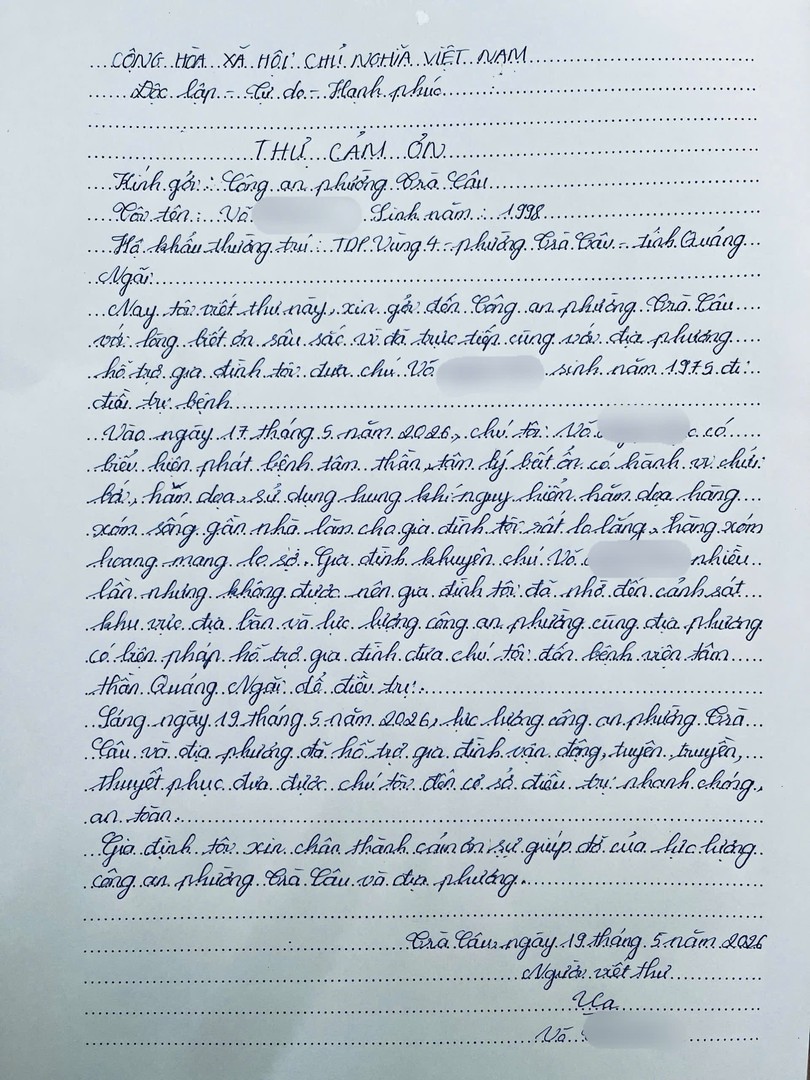 CỘNG HÒA XÃ HỘI CHỦ NGHĨA VIỆT NAM
Độc lập - Tự do - Hạnh phúc
THƯ CẢM ƠN
Kính gởi: Công an phường Trà Câu
Tôi tên: Võ Sinh năm: 1998
Hộ khẩu thường trú: TDP Vùng 4 - phường Trà Câu - tỉnh Quảng
Ngãi
Nay tôi viết thư này, xin gởi đến Công an phường Trà Câu
với lòng biết ơn sâu sắc vì đã trực tiếp cùng với địa phương
hỗ trợ gia đình tôi đưa chú Võ sinh năm 1975 đi
điều trị bệnh
Vào ngày 17 tháng 5 năm 2026, chú tôi: Võ có
biểu hiện phát bệnh tâm thần, tâm lý bất ổn có hành vi chửi
bới, hăm dọa, sử dụng hung khí nguy hiểm hăm dọa hàng
xóm sống gần nhà làm cho gia đình tôi rất lo lắng, hàng xóm
hoang mang lo sợ. Gia đình khuyên chú Võ nhiều
lần nhưng không được nên gia đình tôi đã nhờ đến cảnh sát
khu vực địa bàn và lực lượng công an phường cùng địa phương
có biện pháp hỗ trợ gia đình đưa chú tôi đến bệnh viện tâm
thần Quảng Ngãi để điều trị.
Sáng ngày 19 tháng 5 năm 2026, lực lượng công an phường Trà
Câu và địa phương đã hỗ trợ gia đình vận động, tuyên truyền,
thuyết phục đưa được chú tôi đến cơ sở điều trị nhanh chóng,
an toàn.
Gia đình tôi xin chân thành cảm ơn sự giúp đỡ của lực lượng
công an phường Trà Câu và địa phương.
Trà Câu, ngày 19 tháng 5 năm 2026
Người viết thư
Võ